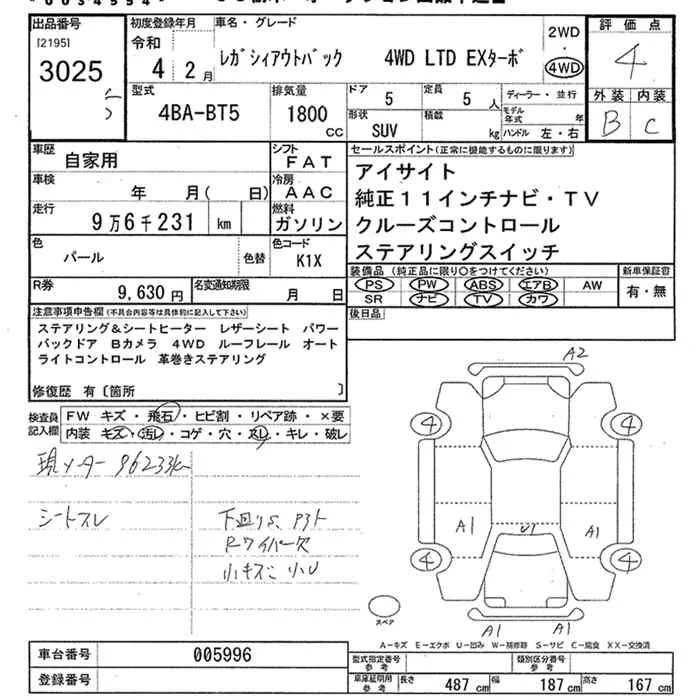 出品番号 初度登録年月 車名・グレード 2WD ・ 4WD 評価点
[2195] 3025 令和 4 2月 レガシィアウトバック 4WD LTD EXターボ 4
型式 4BA-BT5 排気量 1800 CC ドア 5 定員 5 人 ディーラー・並行 外装 内装
形状 SUV 積載 kg モデル年式 年 ハンドル 左・右 B C
車歴 自家用 シフト FAT セールスポイント(正常に機能するものに限ります)
車検 年 月( 日) 冷房 AAC アイサイト
走行 9万6千231 km 燃料 ガソリン 純正11インチナビ・TV
クルーズコントロール
色 パール 色替 色コード K1X ステアリングスイッチ
R券 9,630円 名変通知期限 月 日 装備品(純正品に限り○をつけてください) 新車保証書
PS PW ABS エアB AW 有・無
SR ナビ TV カワ
注意事項申告欄(不具合内容等は具体的に記入して下さい) 後日品
ステアリング&シートヒーター レザーシート パワー
バックドア Bカメラ 4WD ルーフレール オート
ライトコントロール 革巻きステアリング
修復歴 有〔箇所 〕
検査員記入欄 FW キズ・飛石・ヒビ割・リペア跡・×要
内装 キズ・汚レ・コゲ・穴・スレ・キレ・破レ
現メーター 96233km
シートスレ 下廻りS P3ト
Rワイパー欠
小キズ 小U
A2
4 4
A1 U1 A1
4 4
スペア
A1 A1
A-キズ E-エクボ U-凹み W-補修跡 S-サビ C-腐食 XX-交換済
車台番号 005996 型式指定番号 参考 類別区分番号 参考
登録番号 車庫証明用 参考 長さ 487cm 幅 187cm 高さ 167cm